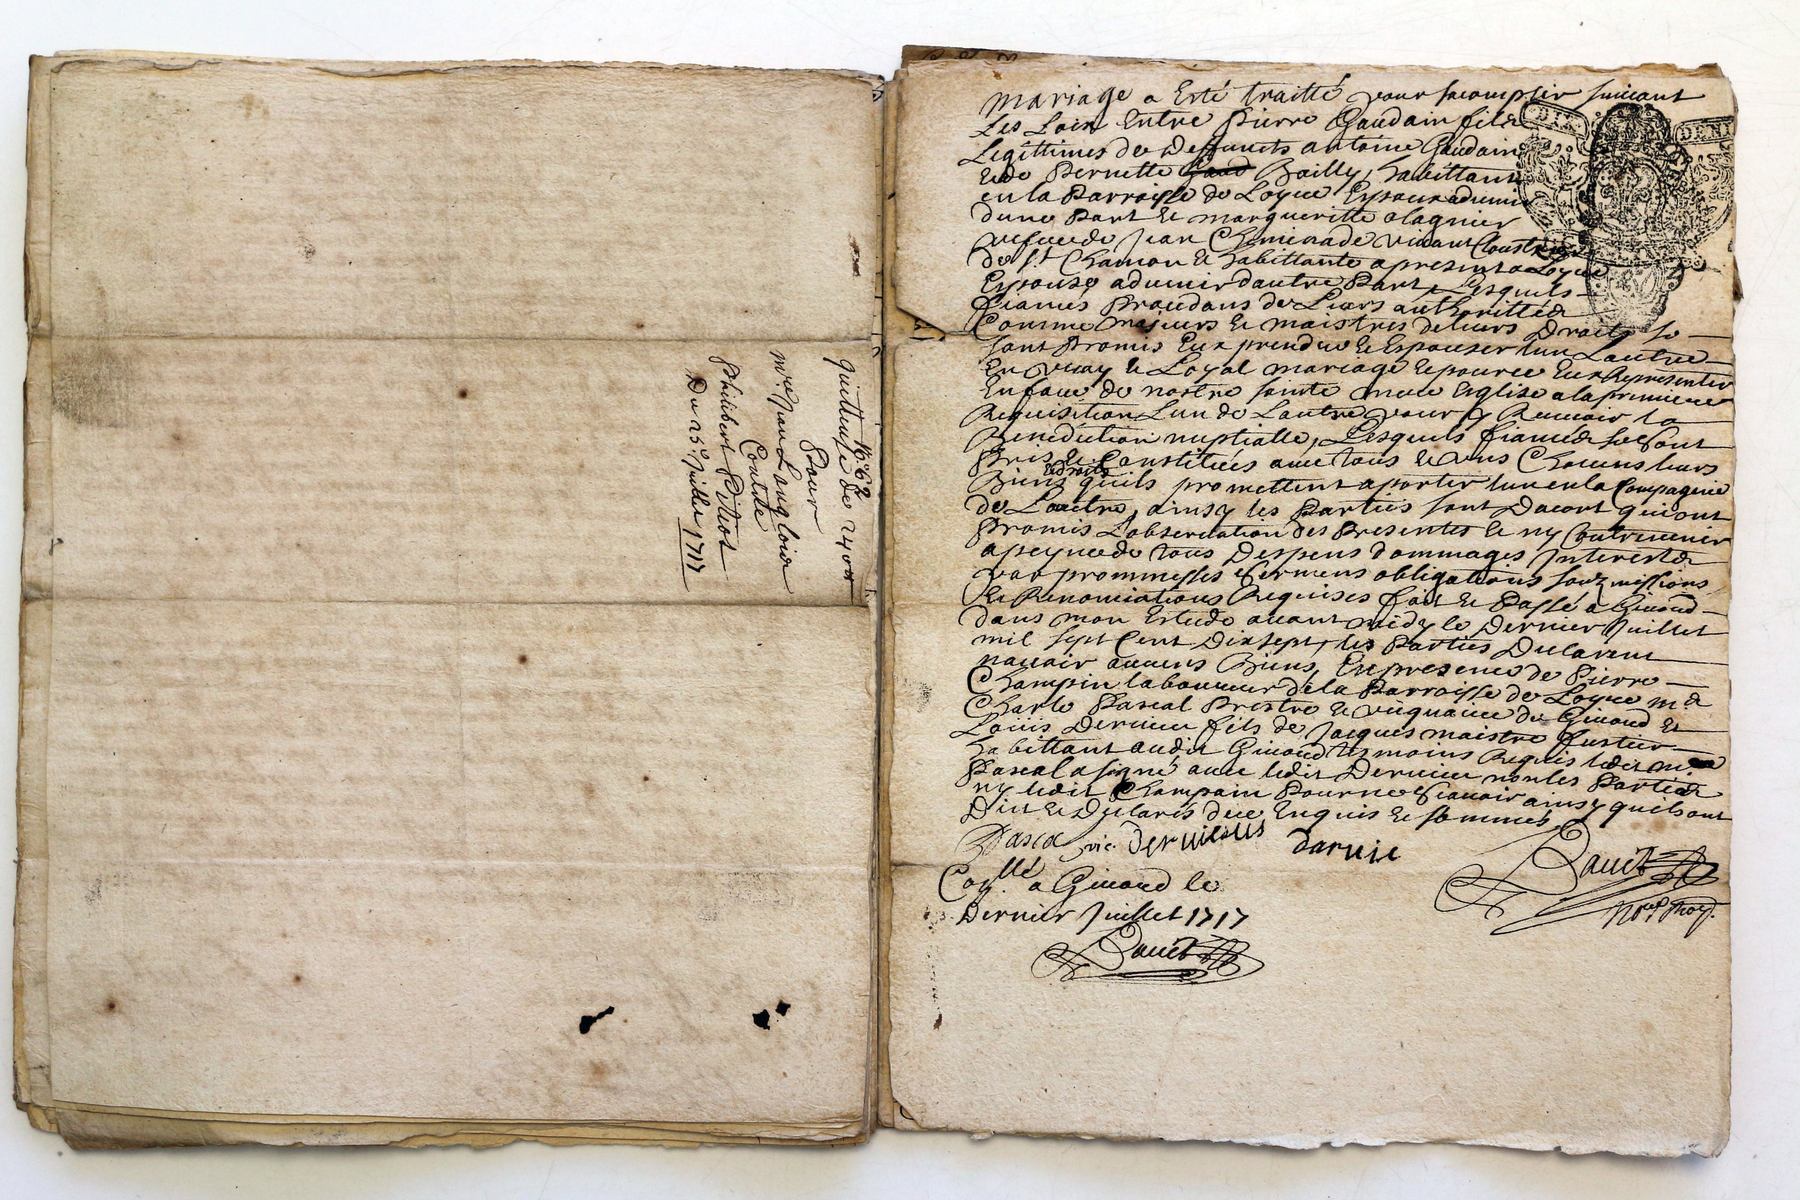 1662
quittense de 240ᵗᵗ
Pour
mʳᵉ. Jean Langlois
Contre
Philibert
Du 25ᵉ. Juillet 1717
mariage a Esté traitté pour sacomplir suivant
Les Loix Entre pierre Gaudain fils
Legittimes de Deffuncts antoine Gaudain
Et de Pernette Bailly, habittant
en la Parroisse de Loyue Espoux advenir
dune Part Et margueritte olagnier
vefue de Jean Cheminade vivant
de sᵗ. Chamon Et habittante apresent a Loyue
Espouse advenir dautre Part, Lesquels
fiances Procedans de Leurs authorittés
Comme majeurs Et maistres deleurs Droits se
sont Promis Eux prendre Et Espouser lun Lautre
En vray Et Loyal mariage Et pource Eux Representer
En face de nostre sainte mere Eglise ala premiere
Requisition Lun de Lautre pour y Recevoir la
Benediction nuptialle, Lesquels fiancés se sont
Pris Et Constitués avec tous Et uns Chacuns leurs
Biens et droits quils promettent aporter lun en la Compagnie
de Lautre, ainsy les Parties sont Dacort qui ont
Promis Lobservation des Presentes Et ny Contrevenir
apeyne de tous Despens dommages Interests
par prommesses sermens obligations soubmissions
Et Renonciations Requises fait Et Passé a Givord
dans mon Estude avant midy le Dernier Juillet
mil sept Cent Dixsept, les Parties Declarent
navoir aucuns Biens, En presence de Pierre
Champin laboureur de la Parroisse de Loyue mʳ
Charle Pascal Prestre Et viquaire de Givord Et
Loüis Dervieu fils de Jacques maistre fustier
habittant audit Givord tesmoins Requis ledit mʳ
Pascal a signé avec ledit Dervieu non les Parties
ny ledit Champain Pour ne scavoir ainsy quils ont
Dict Et Declarés de ce Enquis Et sommés
Pascal vic. Dervieu
Cogˡˡᵉ a Givord le
Dernier Juillet 1717